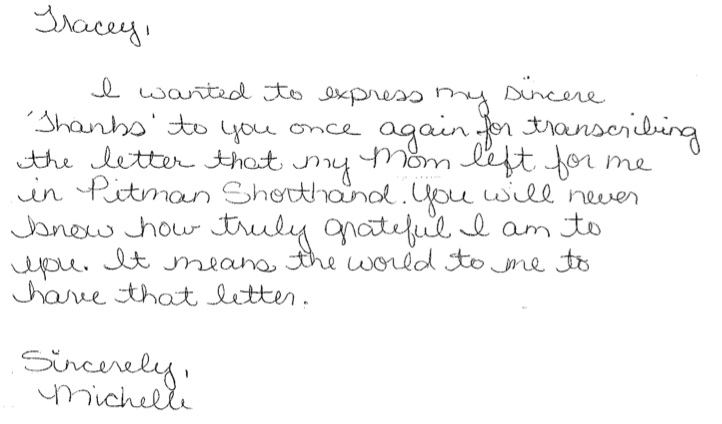 Tracey,
I wanted to express my sincere
'Thanks' to you once again for transcribing
the letter that my Mom left for me
in Pitman Shorthand. You will never
know how truly grateful I am to
you. It means the world to me to
have that letter.
Sincerely,
Michelle